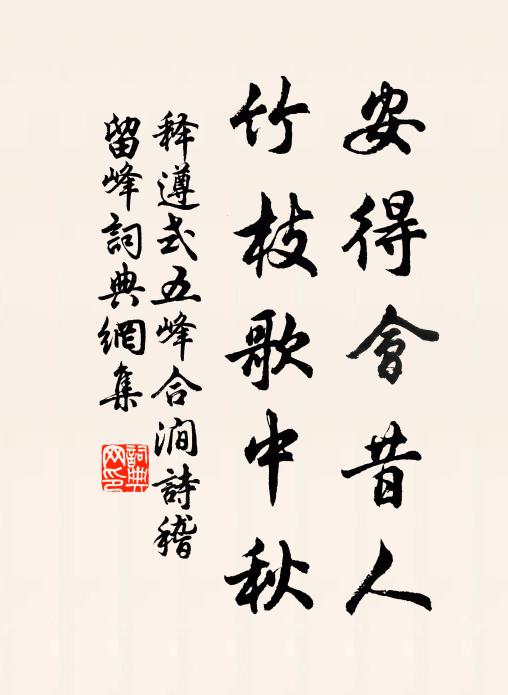 安得會昔人
竹枝歌中秋
释遵式五峰合澗詩稽
留峰詞典網集
詞典网印